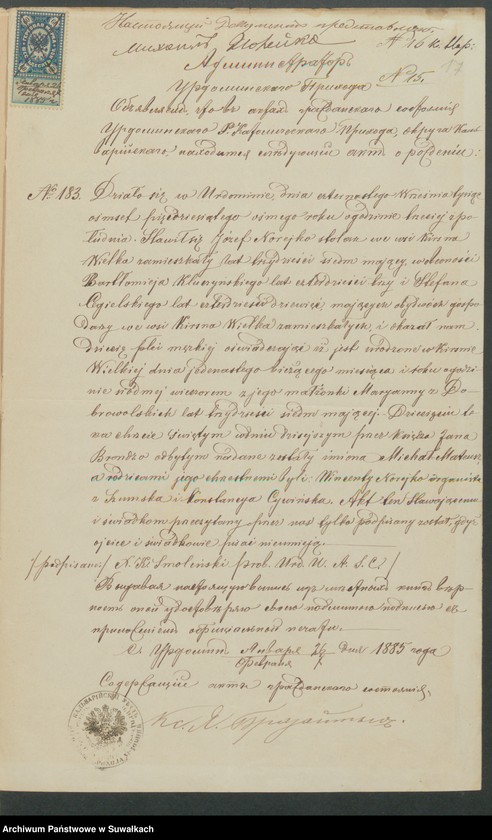 Настоящий документ представляет
Михаилъ Норейко № 16 к Мар:
17
Администраторъ
Урдоминскаго Прихода № 15.
Объявляетъ, что въ актахъ гражданскаго состоянія
Урдоминскаго Р. Католическаго Прихода, округа Каль
варійскаго находится слѣдующій актъ о рожденіи:
№ 183. Działo się w Urdominie, dnia czternastego Września tysiąc
ośmset pięćdziesiątego ósmego roku o godzinie trzeciej z po
łudnia. Stawił się Józef Norejko stolarz we wsi Kirsna
Wielka zamieszkały lat trzydzieści siedm mający, w obecności
Bartłomieja Kluczynskiego lat czterdzieści trzy i Stefana
Cgielskiego lat czterdzieści dziewięć mających obydwóch gospo
darzy we wsi Kirsna Wielka zamieszkałych, i okazał nam
Dziecię płci męzkiej oświadczając iż jest urodzone w Kirsnie
Wielkiej dnia jedenastego bieżącego miesiąca i roku o godzi
nie siódmej wieczorem z jego małżonki Maryanny z Do
browolskich lat trzydzieści siedm mającej. Dziecięciu te
mu na chrzcie Świętym w dniu dzisiejszym przez Księdza Jana
Brondzo odbytym nadane zostały imiona Michał Mateusz
a rodzicami jego chrzestnemi byli: Wincenty Norejko organista
z Szumska i Konstancya Cywińska. Akt ten Stawającemu
i świadkom przeczytany przez nas tylko podpisany został, gdyż
ojciec i świadkowie pisać nieumieją.
/podpisano/ X. K. Smoleński prob. Urd. U. A. S. C. /
съ приложеніемъ оффиціальной печати.
Въ Урдоминѣ Января 26 дня 1885 года
Февраля 7
Содержащій акты гражданскаго состоянія,
Кс. Я.
Archiwum Państwowe w Suwałkach